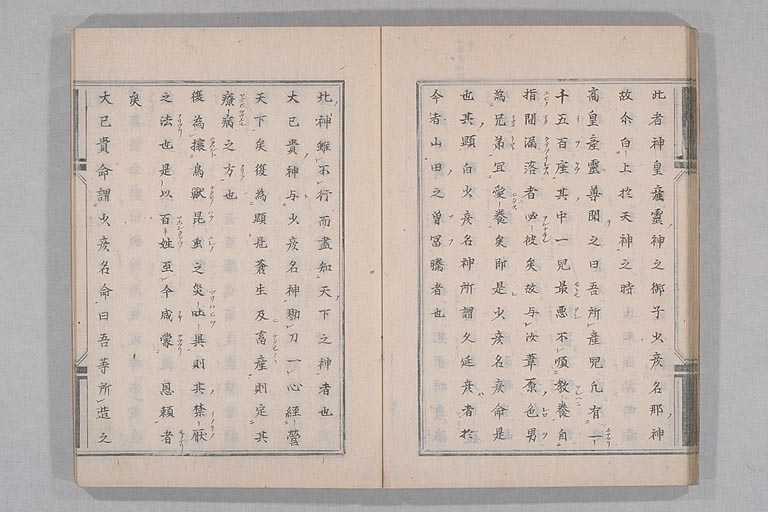 此者神皇産霊神之御子少彦名那神
故尒白上於天神之時
高皇産霊尊聞之曰吾所産児凡有一
千五百座其中一児最悪不順教養自
指間漏落者必彼矣故与汝葦原色男
為兄弟冝愛養矣即是少彦名命是
也其顕白少彦名神所謂久延彦者於
今者山田之曽冨騰者也
此神雖不行而盡知天下之神者也
大己貴神与少彦名神勠力一心経営
天下矣復為顕見蒼生及畜産則定其
療病之方也
復為攘鳥獣昆虫之災異則其禁厭
之法也是以百姓至今咸蒙恩頼者
矣
大己貴命謂少彦名命曰吾等所造之